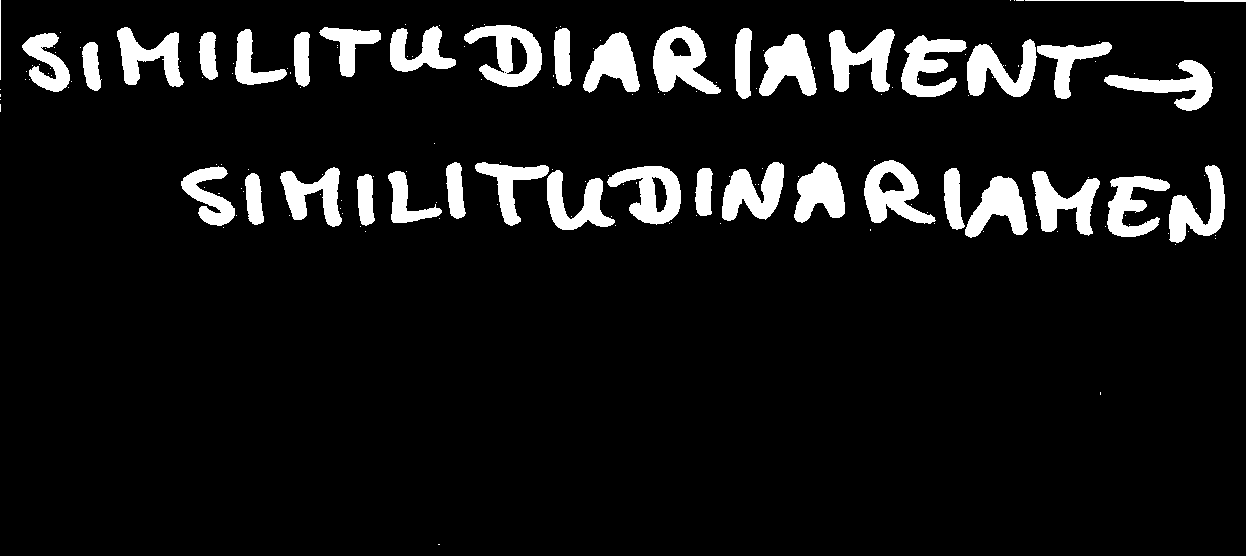 SIMILITUDIARIAMENT →
SIMILITUDINARIAMEN